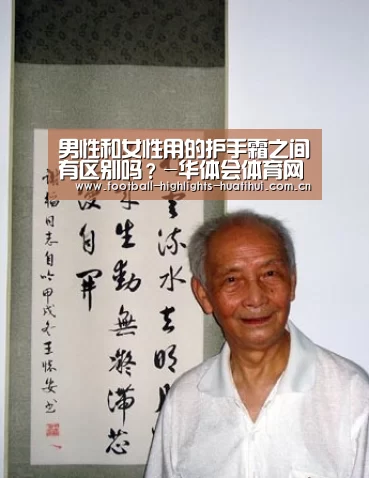 男性和女性用的护手霜之间
有区别吗？-华体会体育网
www.football-highlights-huatihui.com.cn
雲流水去明月
生動無凝滞
自開
同志自吟甲戌冬王懷安书